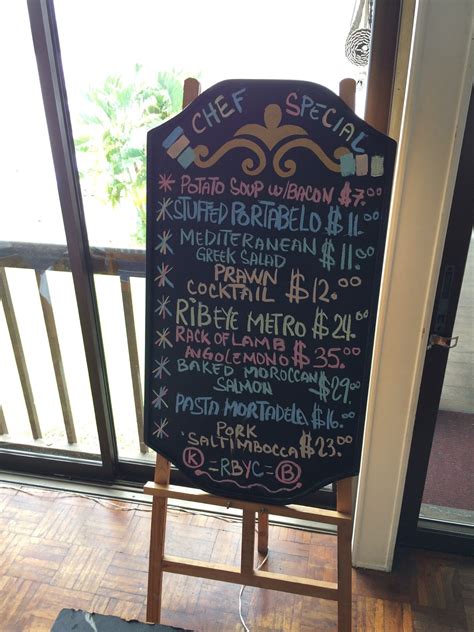 CHEF SPECIAL
* POTATO SOUP W/BACON $7.00
* STUFFED PORTABELO $11.00
* MEDITERANEAN
GREEK SALAD $11.00
* PRAWN
COCKTAIL $12.00
* RIBEYE METRO $24.00
* RACK OF LAMB
ANGOLEMONO $35.00
* BAKED MOROCCAN
SALMON $29.00
* PASTA MORTADELA $16.00
* PORK
SALTIMBOCCA $23.00
K =RBYC= B